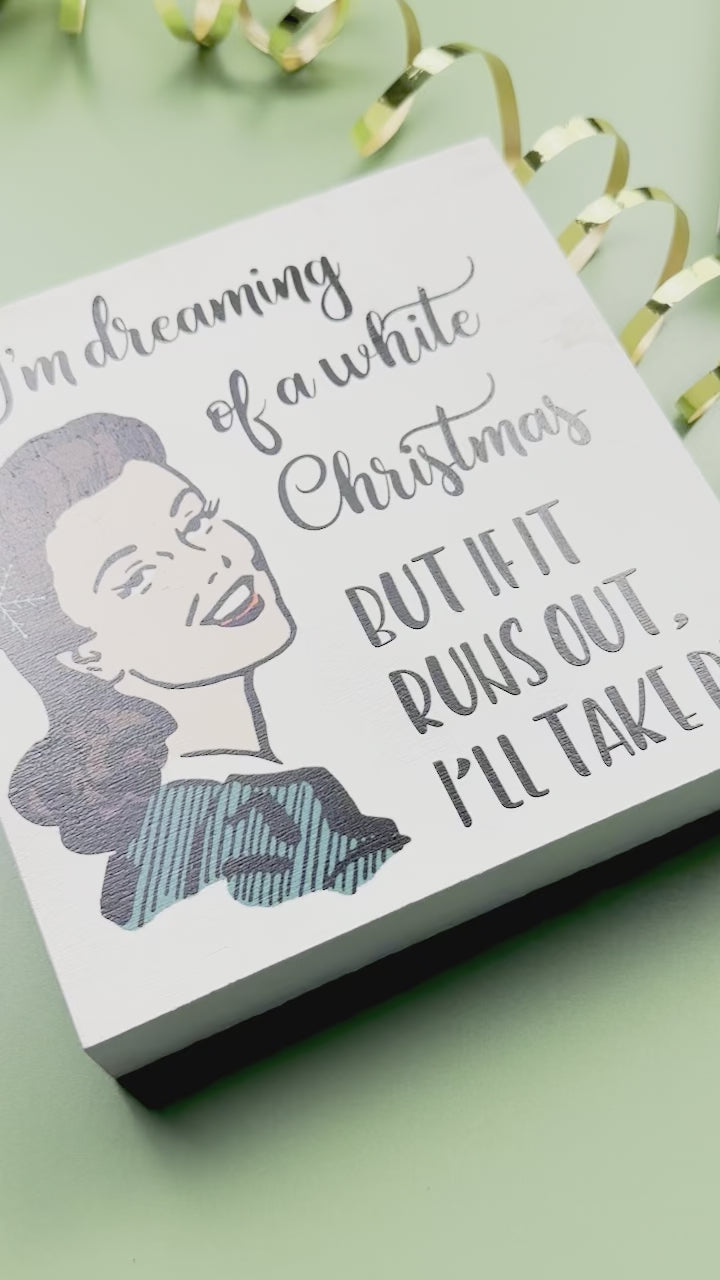 I'm dreaming
of a white
Christmas
BUT IF IT
RUNS OUT,
I'LL TAKE